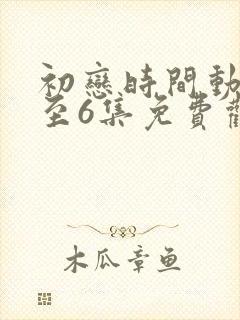 初戀時間動
至6集免費觀
木瓜章鱼